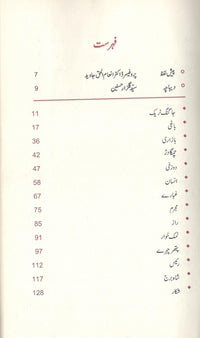 فہرست
پیش لفظ پروفیسر ڈاکٹر انعام الحق جاوید 7
دیباچہ سید گلزار حسنین 9
جاگنگ ٹریک 11
باغی 17
بازاری 36
چمگادڑ 42
دوزخی 47
انسان 58
غبارے 67
مجرم 75
راز 85
نمک خوار 91
پتھر چہرے 97
رئیس 112
شاہ برج 117
شکار 128